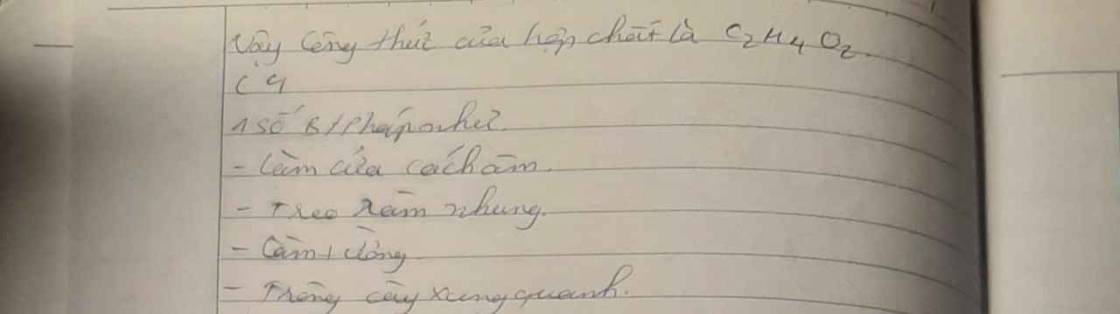 Vậy công thức của hợp chất là C₂H₄O₂.
C4
1 số B/Pháp như
- Làm cửa cách âm.
- Treo rèm nhung.
- 
- Trồng cây xung quanh.